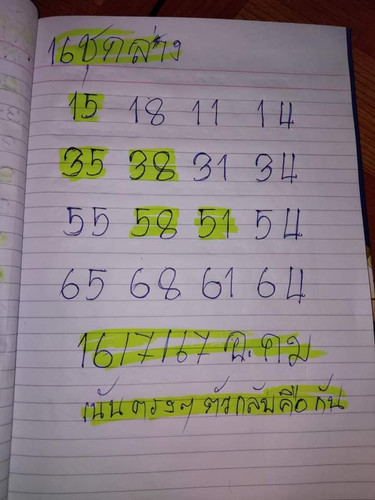 16ชุดล่าง
15 18 11 14
35 38 31 34
55 58 51 54
65 68 61 64
16/7/67 อ.คม
เน้นตรงๆตัวกลับคือกัน